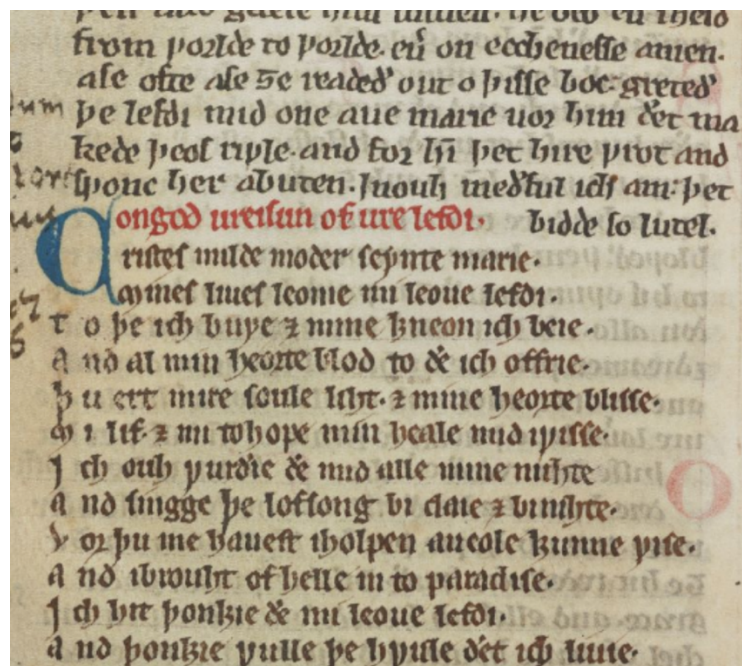 from worlde to worlde. eū on ecchenesse amen.
ase ofte ase ȝe readeð out o þisse boc. greteð
þe lefdi mid one aue marie uor him ðet ma
kede þeos riwle. and for hī þet hire wrot and
swonc her abuten. Inouh meðful ich am. þet
on god ureisun of ure lefdi. bidde so lutel.
Cristes milde moder seynte marie.
Mines liues leome mi leoue lefdi.
To þe ich buwe ⁊ mine kneon ich beie.
And al min heorte blod to ðe ich offrie.
Þu ert mire soule liht. ⁊ mine heorte blisse.
Mi lif. ⁊ mi tohope min heale mid iwisse.
Ich ouh wurðie ðe mid alle mine mihte
And singge þe lofsong bi daie ⁊ bi nihte.
Vor þu me hauest iholpen aueole kunne wise.
And ibrouht of helle in to paradise.
Ich hit þonkie ðe mi leoue lefdi.
And þonkie wulle þe hwule ðet ich liuie.